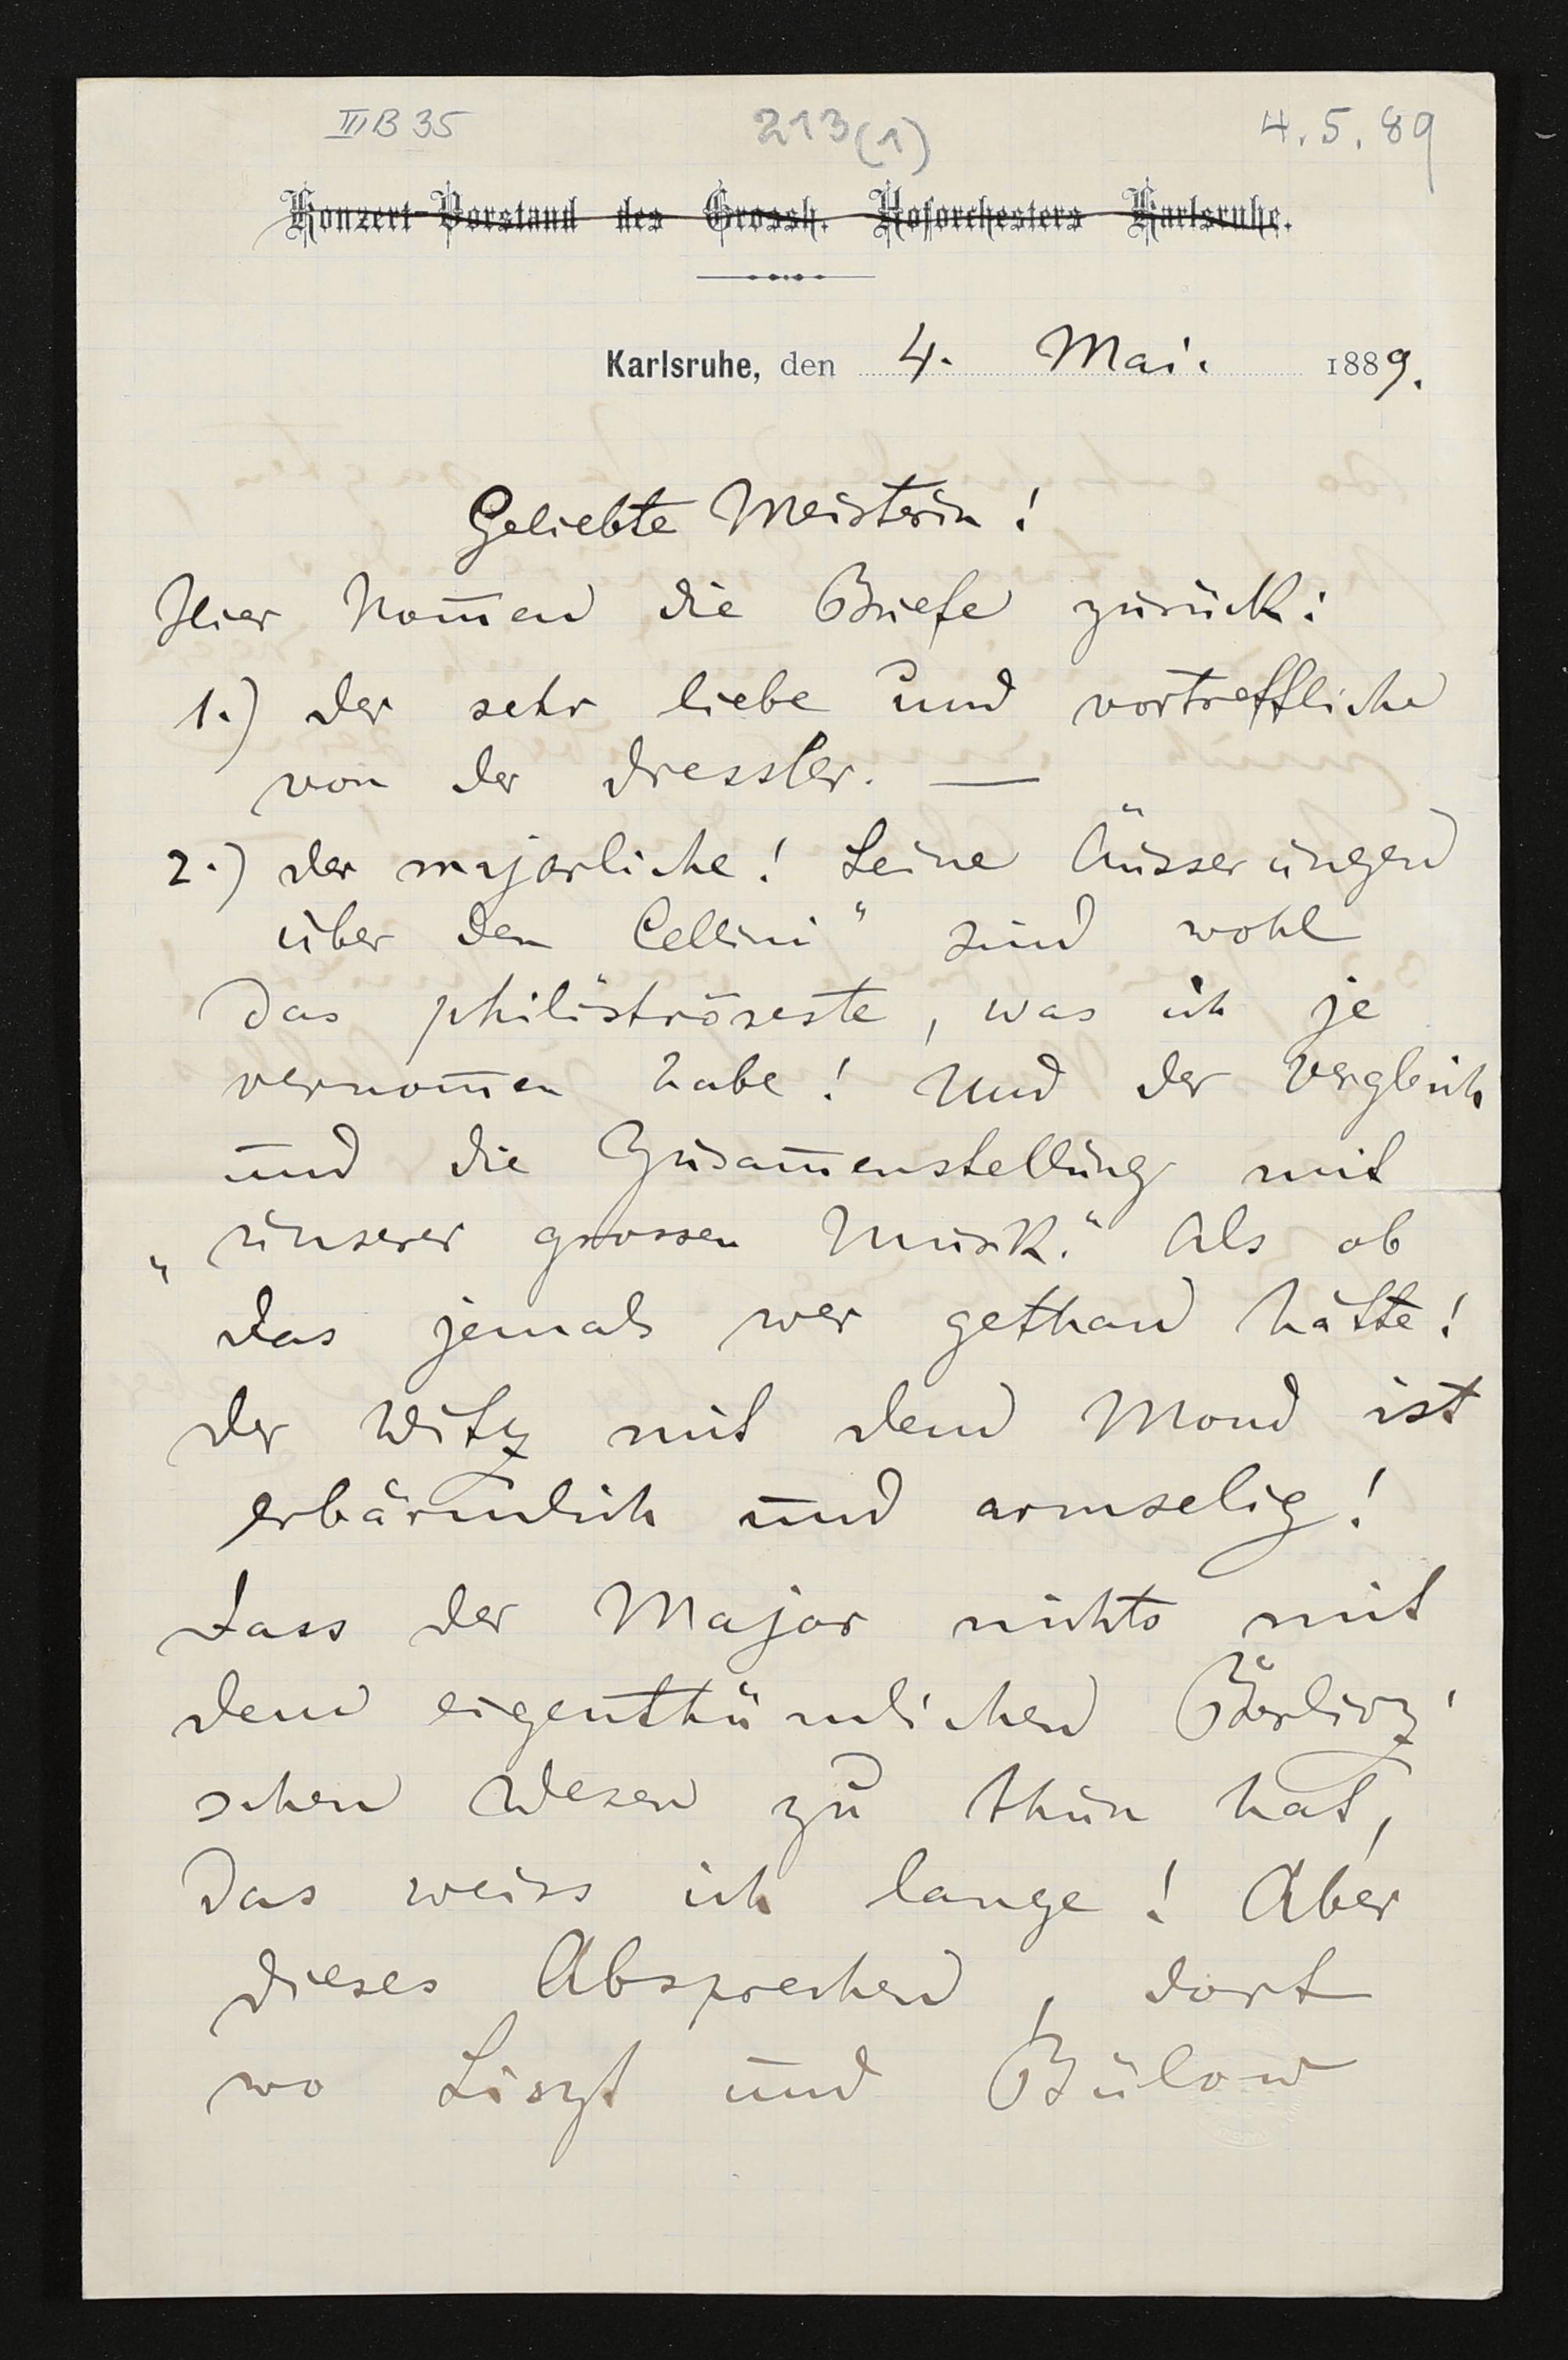 III B 35 213(1) 4.5.89
Konzert-Vorstand des Grossh. Hoforchesters Karlsruhe.
Karlsruhe, den 4. Mai. 1889.
Geliebte Meisterin!
Hier kom̄en die Briefe zurück:
1.) der sehr liebe und vortreffliche
von der Dressler. —
2.) der majorliche! Seine Äusserungen
über den Cellini" sind wohl
das philiströseste, was ich je
vernom̄en habe! Und der Vergleich
und die Zusam̄enstellung mit
„unserer grossen Musik." Als ob
das jemals wer gethan hätte!
der Witz mit dem Mond ist
erbärmlich und armselig!
Dass der Major nichts mit
dem eigenthümlichen Berlioz'
schen Wesen zu thun hat,
das weiss ich lange! Aber
dieses Absprechen, dort
wo Liszt und Bülow